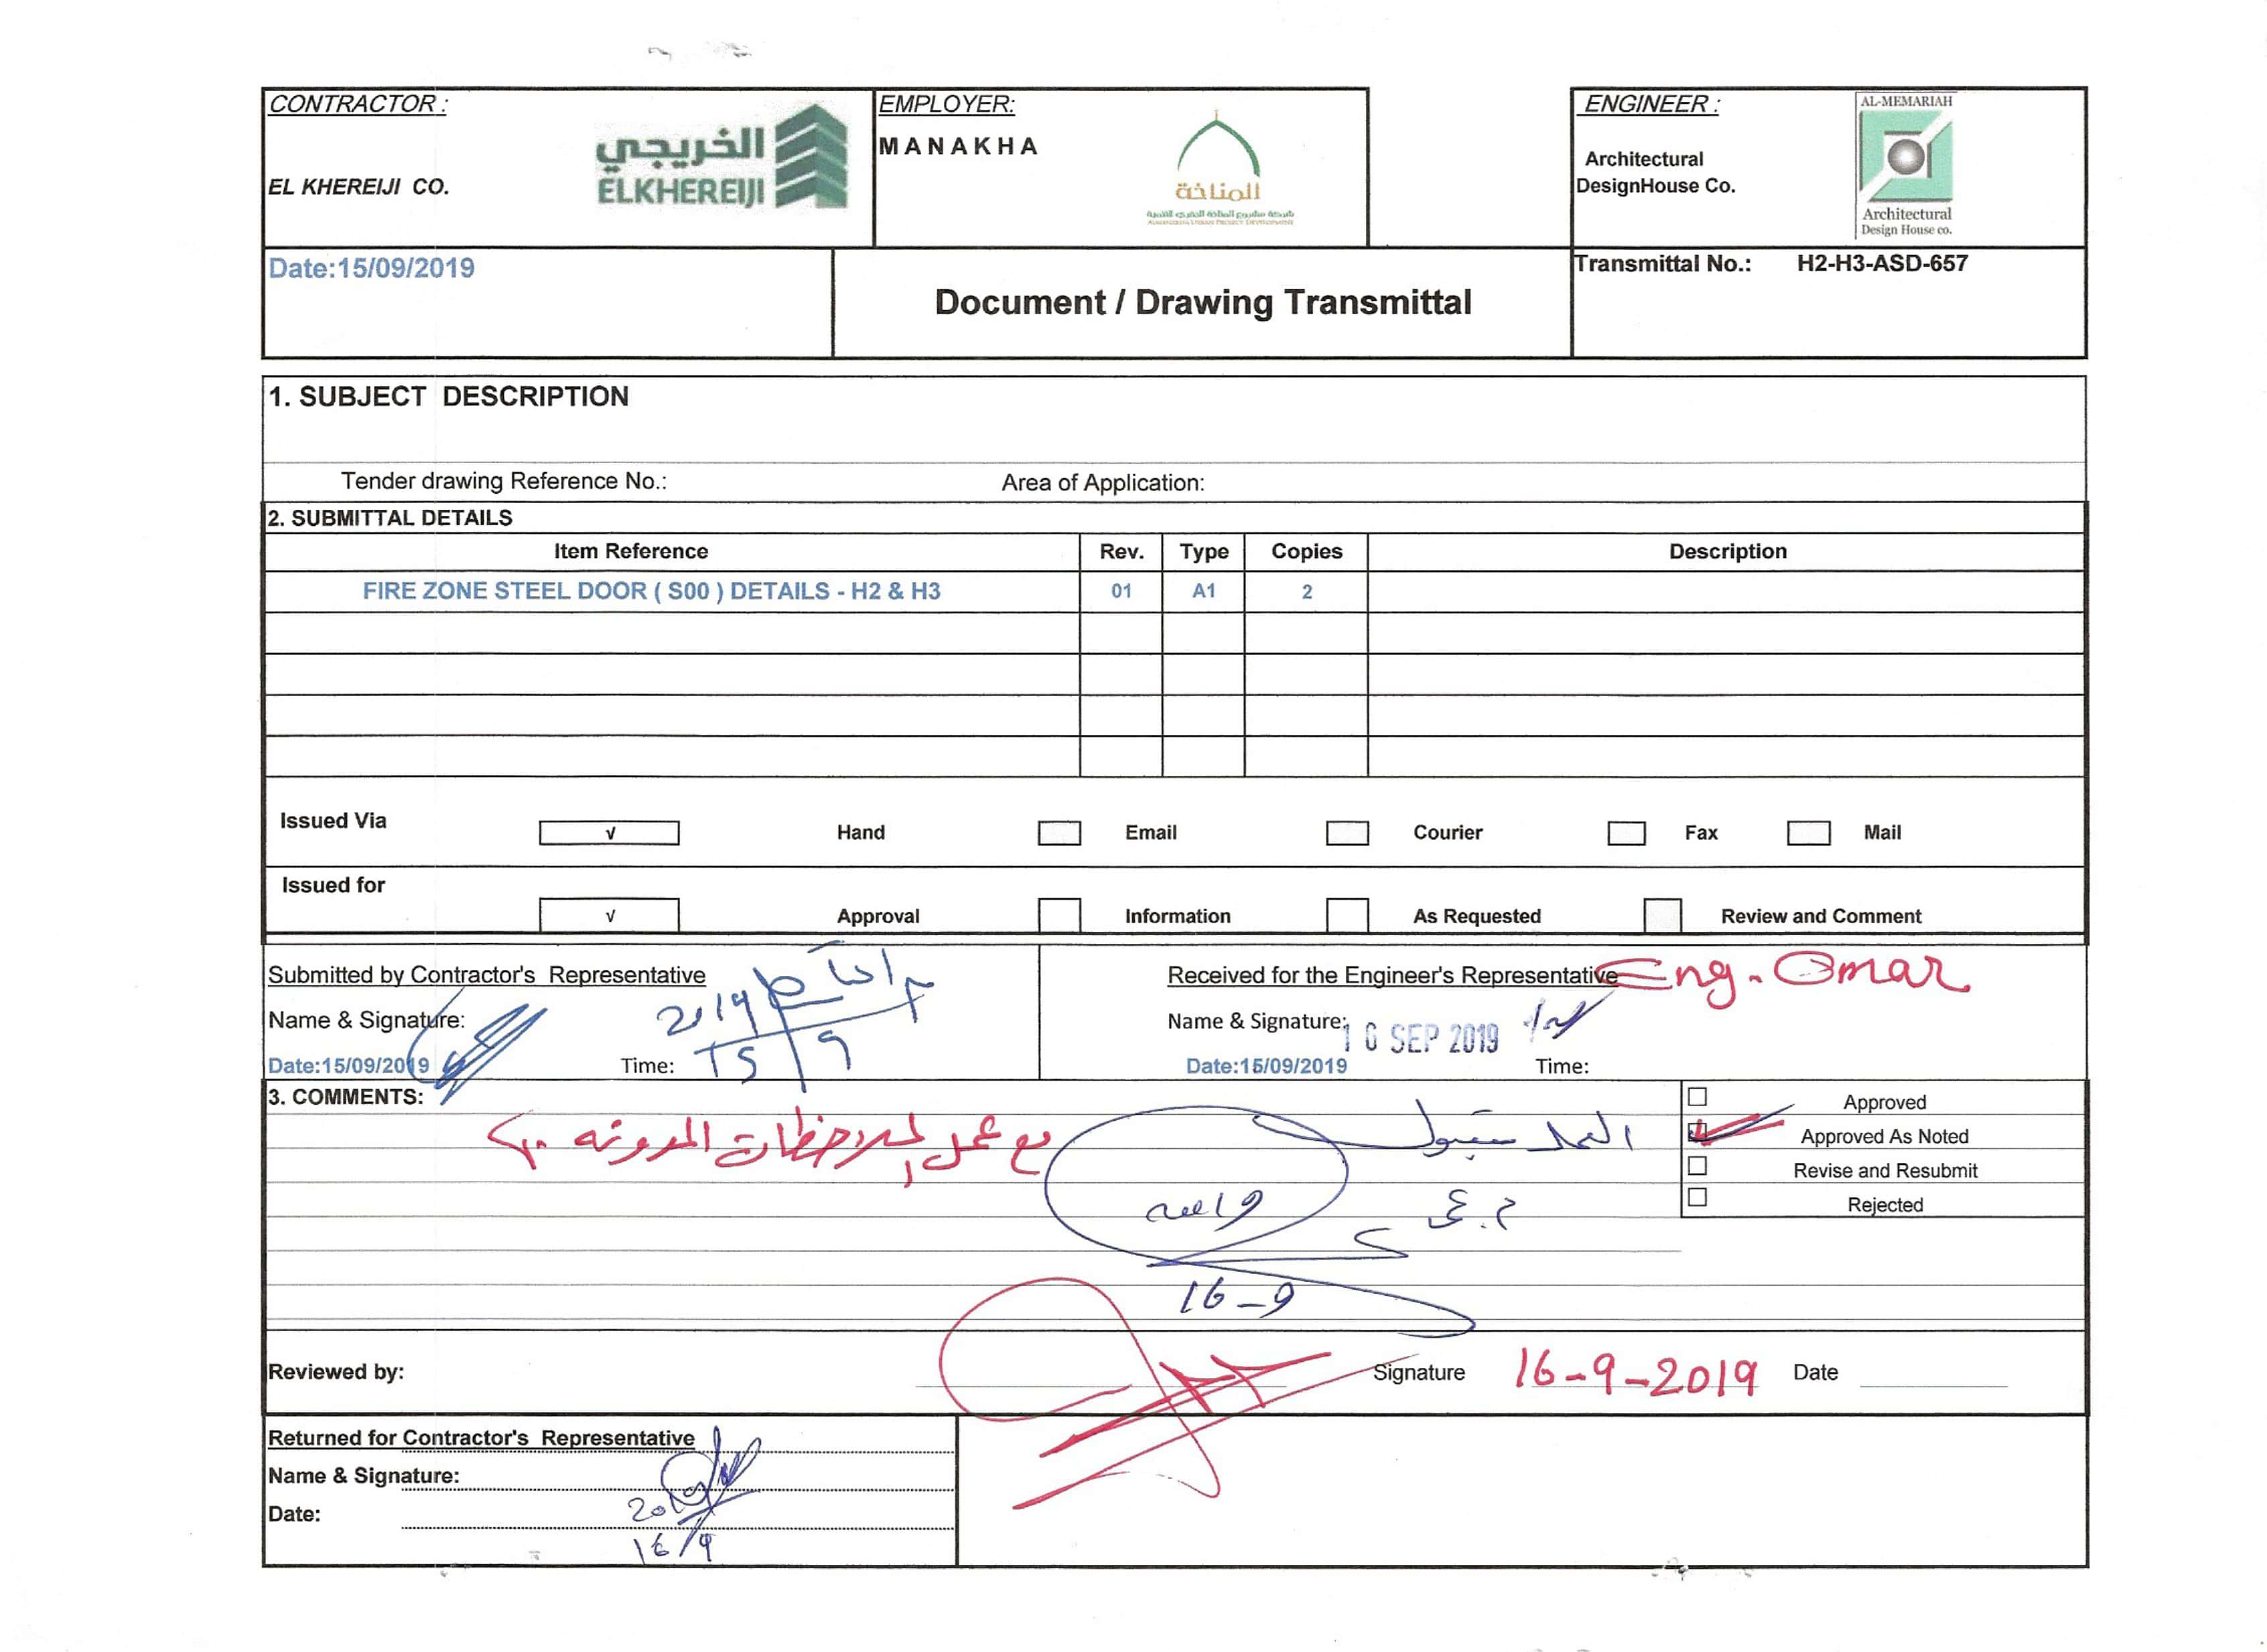 CONTRACTOR :
EL KHEREIJI CO.
الخريجي
ELKHEREIJI
EMPLOYER:
MANAKHA
المناخة
ENGINEER :
Architectural
DesignHouse Co.
AL-MEMARIAH
Architectural
Design House co.
Date:15/09/2019
Document / Drawing Transmittal
Transmittal No.: H2-H3-ASD-657
1. SUBJECT DESCRIPTION
Tender drawing Reference No.: Area of Application:
2. SUBMITTAL DETAILS
Item Reference Rev. Type Copies Description
FIRE ZONE STEEL DOOR ( S00 ) DETAILS - H2 & H3 01 A1 2
Issued Via √ Hand Email Courier Fax Mail
Issued for √ Approval Information As Requested Review and Comment
Submitted by Contractor's Representative
Name & Signature:
2019
15 9
Date:15/09/2019 Time:
Received for the Engineer's Representative Eng. Omar
Name & Signature:
16 SEP 2019
Date:15/09/2019 Time:
3. COMMENTS:
مع عمل الملاحظات المدونه
16-9
Approved
Approved As Noted
Revise and Resubmit
Rejected
Reviewed by: Signature 16-9-2019 Date
Returned for Contractor's Representative
Name & Signature:
Date:
16/9